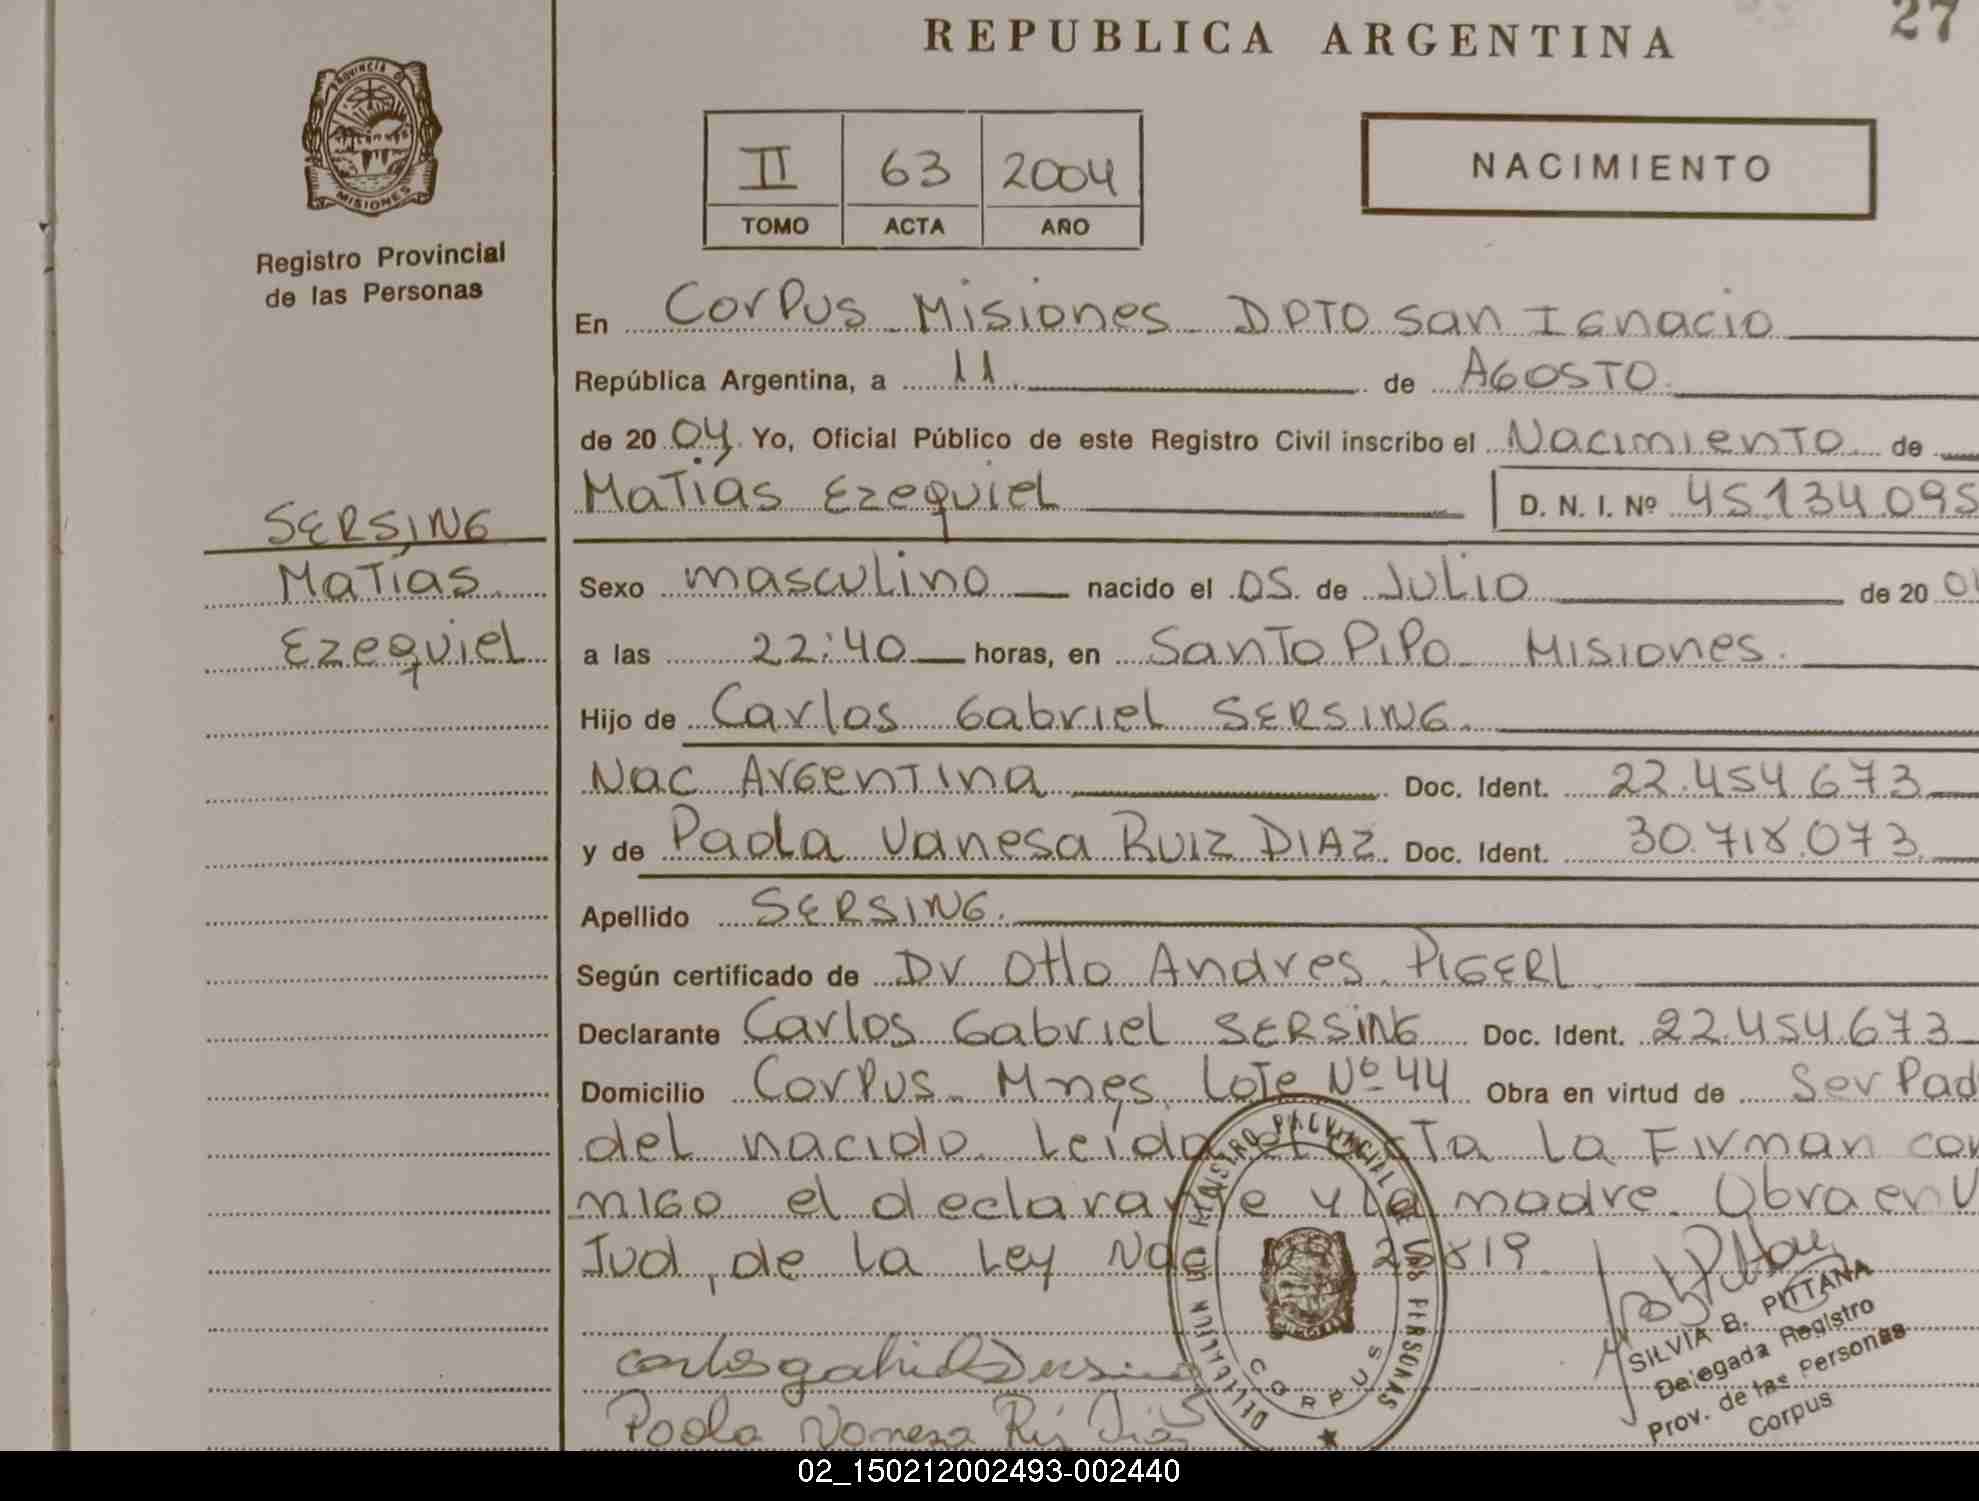 REPUBLICA ARGENTINA
27
PROVINCIA D
MISIONES
Registro Provincial
de las Personas
II 63 2004
TOMO ACTA AÑO
NACIMIENTO
En Corpus Misiones DPTO San Ignacio
República Argentina, a 11 de AGOSTO
de 20 04 Yo, Oficial Público de este Registro Civil inscribo el Nacimiento de
Matías Ezequiel D. N. I. Nº 45.134.095
SERSING
Matías
Ezequiel
Sexo masculino nacido el 05 de Julio de 20
a las 22:40 horas, en Santo Pipo Misiones.
Hijo de Carlos Gabriel SERSING.
Nac Argentina Doc. Ident. 22.454.673
y de Paola Vanesa RUIZ DIAZ. Doc. Ident. 30.718.073
Apellido SERSING.
Según certificado de Dr Otto Andres PIGERL
Declarante Carlos Gabriel SERSING Doc. Ident. 22.454.673
Domicilio Corpus - Mnes. Lote Nº 44 Obra en virtud de Ser Pad
del nacido. Leída el Ta La Firman con
migo el declarante y la madre. Obra en V
Tud, de la Ley 819
Carlos gabriel Sersing
Paola Vanesa Diaz
DELEGACION REGISTRO PROVINCIAL DE LAS PERSONAS
CORPUS
SILVIA B. PITTANA
Delegada Registro
Prov. de las Personas
Corpus
02_150212002493-002440